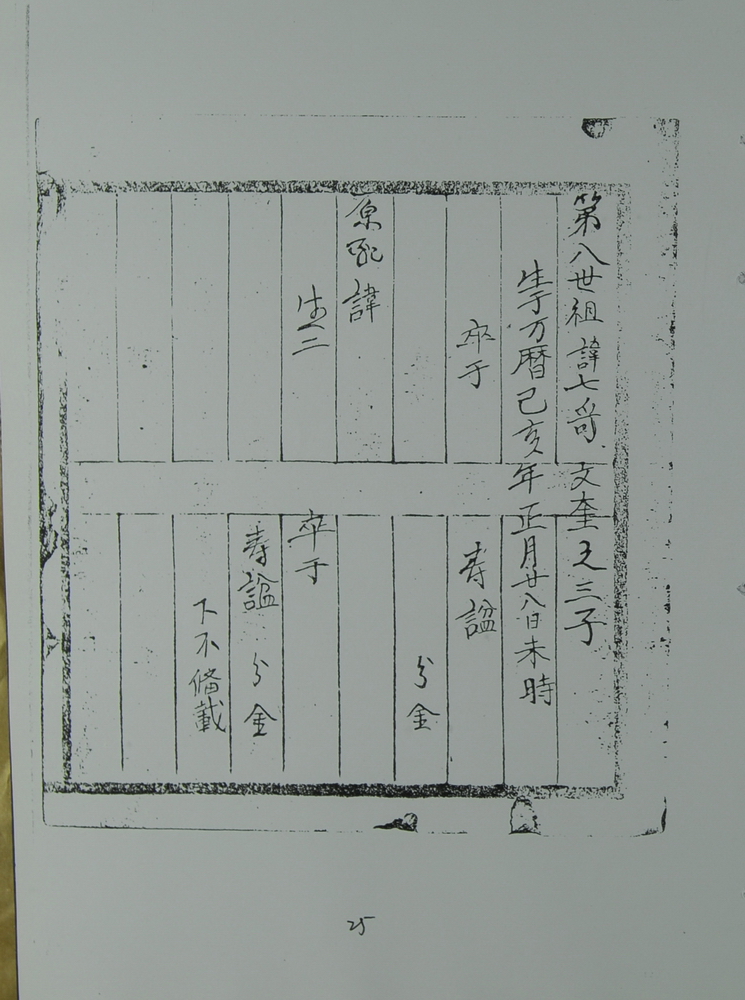 第八世祖 諱七哥 文奎之三子
生于万暦己亥年正月廿八日未時
卒于 寿諡
分金
原配諱
生二 卒于
寿諡 分金
下不俻載
25